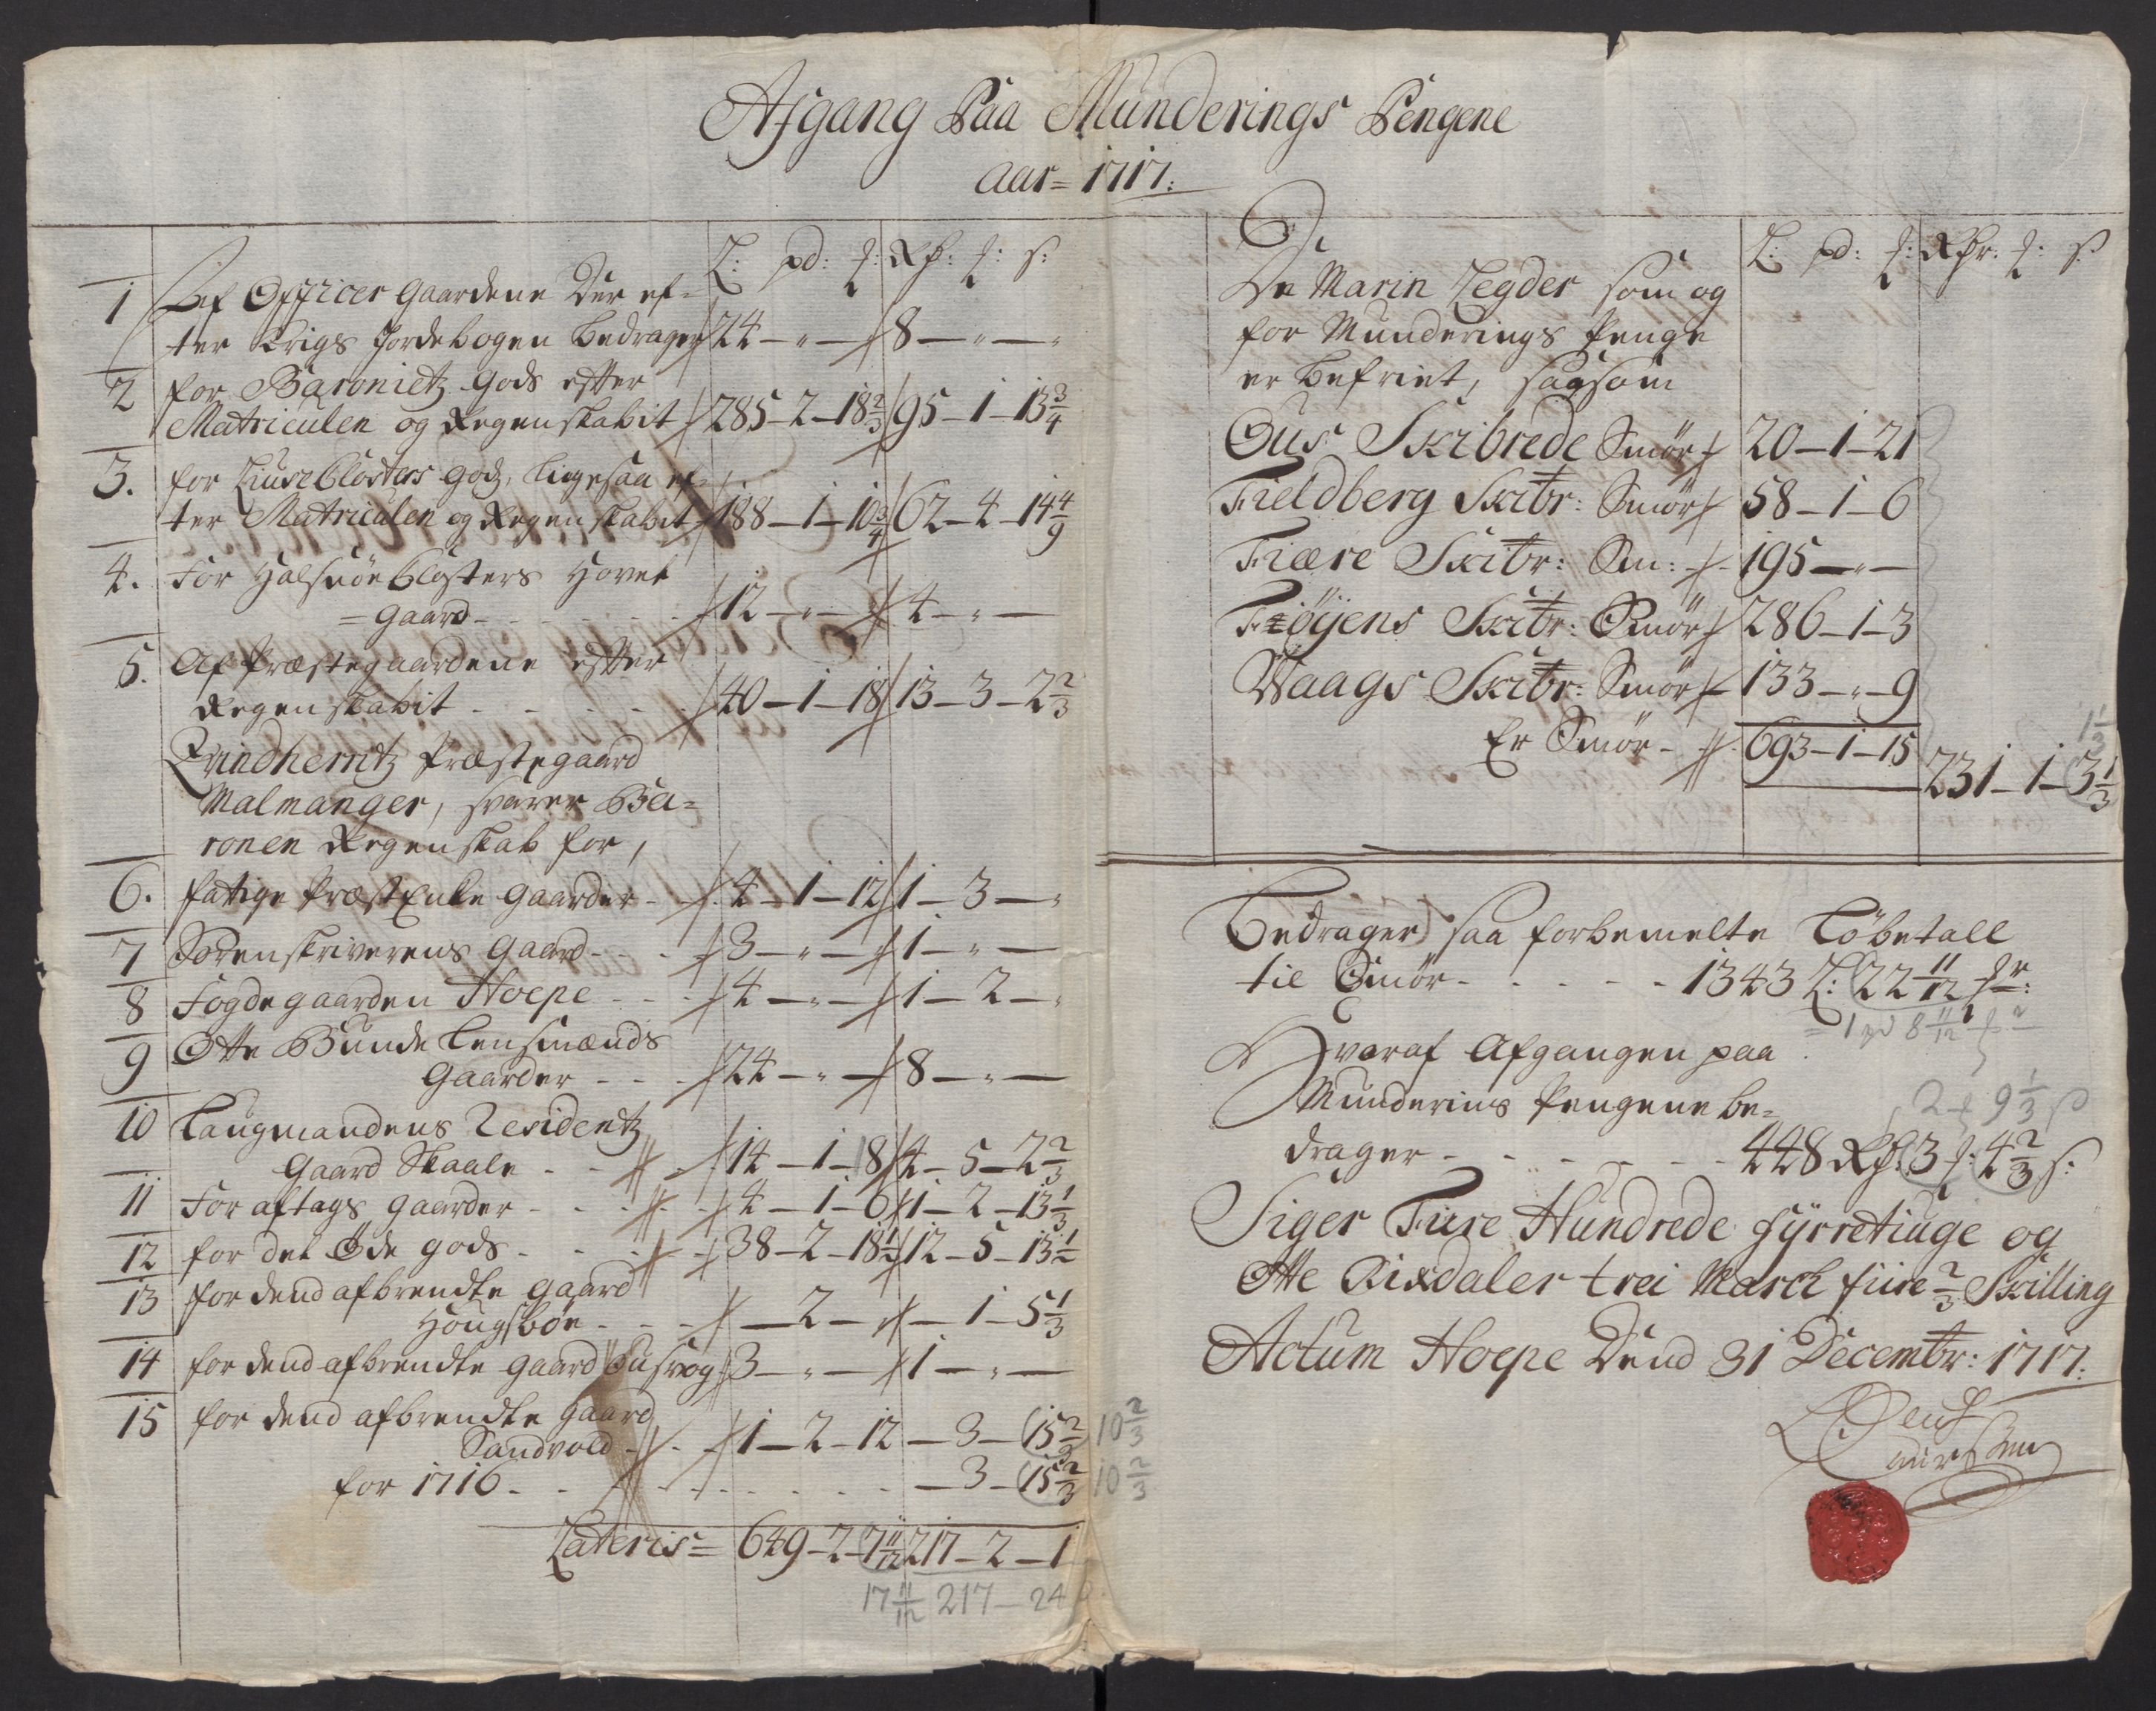 Afgang Paa Munderings Pengene
Aar= 1717:
L: pd: ʒ: Rdr: ʒ: s:
1 Af Officer Gaardene Der ef=
ter Krigs Jordebogen bedrager 24 — " — 8 — " — "
2 for Baronietz Gods efter
Matriculen og Regenskabit 285 - 2 - 18 2/3 95 - 1 - 13 3/4
3. for Liuse Closters Gods, ligesaa ef=
ter Matriculen og Regenskabit 188 - 1 - 10 3/4 62 - 4 - 14 4/9
4. For Halsnöe Closters Hovet
=gaard - - - - - 12 — " — 4 — " —
5. Af Præstegaardene efter
Regenskabit - - - - 40 - 1 - 18 13 - 3 - 2 2/3
Qvindherritz Præstegaard
Malmanger, svarer Ba=
ronen Regenskab for,
6. fatige Præst Enke Gaarder - 4 - 1 - 12 1 - 3 — "
7 Sorenskriverens Gaard - - - 3 — " — 1 — " —
8 Fogdegaarden Hoepe - - - 4 — " — 1 - 2 — "
9 Otte Bunde Lensmænds
Gaarder - - - 24 — " — 8 — " —
10 Laugmandens Residentz
Gaard Skaale - - - 14 - 1 - 18 4 - 5 - 2 2/3
11 For aftags gaarder - - - - 4 - 1 - 6 1 - 2 - 13 1/3
12 for det Öde gods - - - - 38 - 2 - 18 1/2 12 - 5 - 13 1/2
13 for dend afbrendte gaard
Hougsböe - - - — 2 — — 1 - 5 1/3
14 for dend afbrendte gaard Husvog 3 — " — 1 — " —
15 for dend afbrendte gaard
Sandvold - - - 1 - 2 - 12 — 3 - 15 2/3 10 2/3
for 1716 - - - - - - - - — 3 - 15 2/3 10 2/3
Lateris = 649 - 2 - 7 11/12 217 - 2 - 1
17 11/12 217 — 24
L: pd: ʒ: Rdr: ʒ: s
De Marin Legder som og
for Munderings Penge
er befriet, saasom
Ous Skibrede Smör 20 - 1 - 21
Fieldberg Skibr: Smör 58 - 1 - 6
Fiære Skibr: Sm: 195 — " —
Föyens Skibr: Smör 286 - 1 - 3
Waags Skibr: Smör 133 - " - 9
Er Smör - 693 - 1 - 15 1 1/3
231 - 1 - 3 1/3
Bedrager saa forbemelte Löbetall
til Smör - - - - - 1343 L: 22 11/12 ʒr:
= 1 pd 8 11/12
Hvoraf Afgangen paa
Munderins Pengene be= 2 9 1/3 s
drager - - - - - - 448 Rdr: 3 ʒ: 4 2/3 s:
Siger Fiire Hundrede fyrretiuge og
Otte Rixdaler trei March fiire 2/3 Skilling
Actum Hoepe Dend 31 Decembr: 1717.